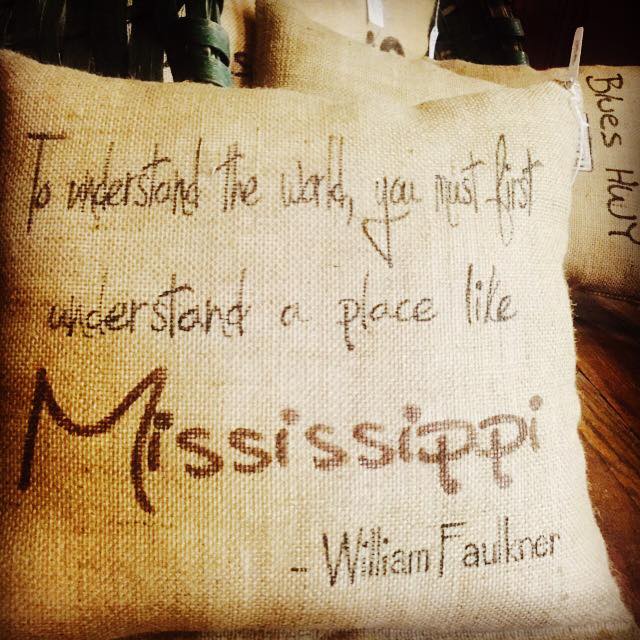 To understand the world, you must first
understand a place like
Mississippi
- William Faulkner
Blues HWY